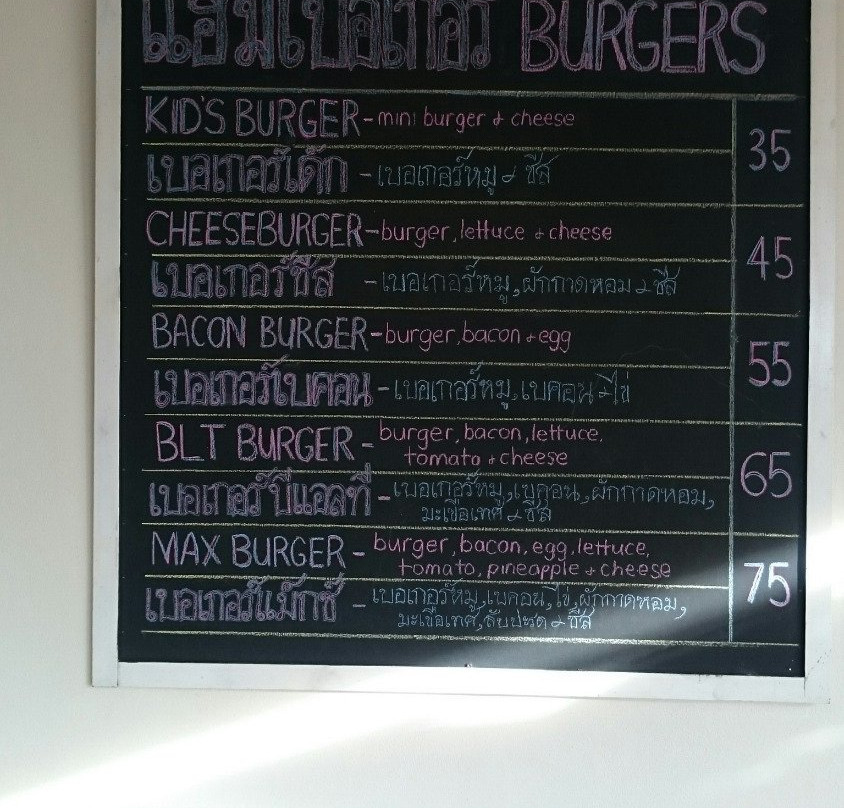 แฮมเบอเกอร์ BURGERS
KID'S BURGER - mini burger & cheese 35
เบอเกอร์เด็ก - เบอเกอร์หมู & ชีส
CHEESEBURGER - burger, lettuce & cheese 45
เบอเกอร์ชีส - เบอเกอร์หมู, ผักกาดหอม & ชีส
BACON BURGER - burger, bacon & egg 55
เบอเกอร์เบคอน - เบอเกอร์หมู, เบคอน & ไข่
BLT BURGER - burger, bacon, lettuce,
tomato & cheese 65
เบอเกอร์บีแอลที - เบอเกอร์หมู, เบคอน, ผักกาดหอม,
มะเขือเทศ & ชีส
MAX BURGER - burger, bacon, egg, lettuce,
tomato, pineapple & cheese 75
เบอเกอร์แม็กซ์ - เบอเกอร์หมู, เบคอน, ไข่, ผักกาดหอม,
มะเขือเทศ, สับปะรด & ชีส